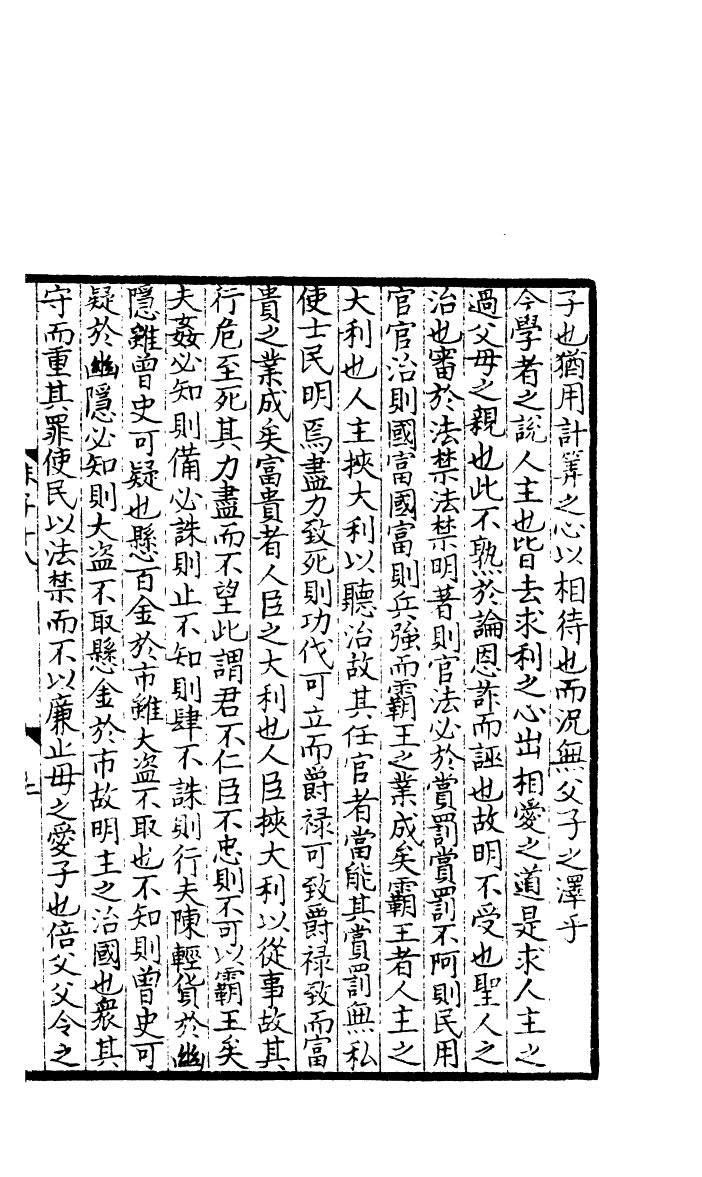 子也猶用計筭之心以相待也而況無父子之澤乎
今學者之說人主也皆去求利之心出相愛之道是求人主之
過父母之親也此不熟於論恩詐而誣也故明不受也聖人之
治也審於法禁法禁明著則官法必於賞罰賞罰不阿則民用
官官治則國富國富則兵強而霸王之業成矣霸王者人主之
大利也人主挾大利以聽治故其任官者當能其賞罰無私
使士民明焉盡力致死則功伐可立而爵祿可致爵祿致而富
貴之業成矣富貴者人臣之大利也人臣挾大利以從事故其
行危至死其力盡而不望此謂君不仁臣不忠則不可以霸王矣
夫姦必知則備必誅則止不知則肆不誅則行夫陳輕貨於幽
隱雖曾史可疑也懸百金於市雖大盗不取也不知則曾史可
疑於幽隱必知則大盗不取懸金於市故明主之治國也衆其
守而重其罪使民以法禁而不以廉止母之愛子也倍父父令之
子十八